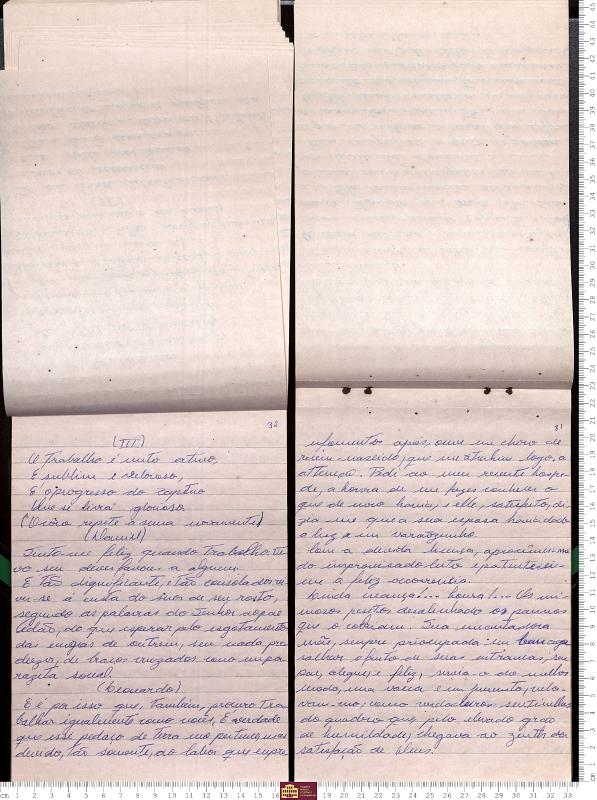 32
(III)
O Trabalho é muto ativo,
É sublime e valoroso,
É o progresso do cativo
(O côro repete a cena novamente)
(Daniel)
Sinto-me feliz quando trabalho
seu desenfavor a alguem.
É tão dignificante, e tão consolador vi-
ver-se á custa do suor de seu rosto,
segundo as palavras do Senhor
do que esperar pelo esgotamento
das energias de outrem, sem nada pro-
duzir, de braços cruzados como um pa-
razita social.
(Leonardo)
E é por isso que, também, procuro Tra-
balhar igualmente como vocês. É verdade
que esse pedaço de terra me pertence, mas
devido, tão somente, ao labor que
31
Momentos após, ouve um choro de
recem-nascido, que me atraiu logo, a
attenção. Pedi ao meu recente hospe-
de, a honra de me fazer conhecer o
que de novo havia, e elle, satisfeito, di-
zia-me que a sua esposa havia dado
a luz a um varãozinho.
Com a devida licença, aproximei-me
do improvisado leito e
me a feliz occorrencia.
Linda creança!... loura!... Us mi-
mosos pesitos desalinhando os pannos
que o cobriam. Sua encantadora
mãe, sempre preocupada em bem aga-
salhar o fruto de suas entranhas, seu
pae, alegre e feliz, servia-o do melhor
modo, uma vacca e um jumento,
vam-no, como verdadeiras sentinellas
do quadro que, pelo elevado gráo
de humildade, chegava ao
satisfação de Deus.